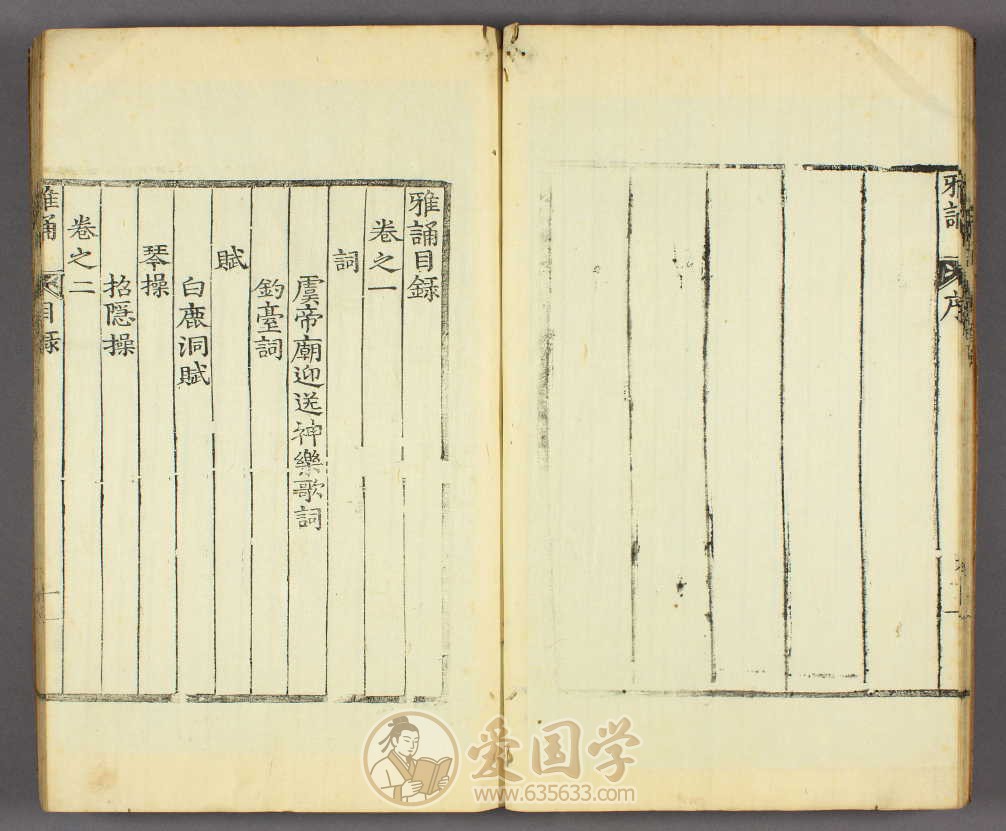 雅誦
序
雅誦目録
卷之一
詞
虞帝廟迎送神樂歌詞
釣臺詞
賦
白鹿洞賦
琴操
招隱操
卷之二
雅誦
目録
爱国学
www.635633.com